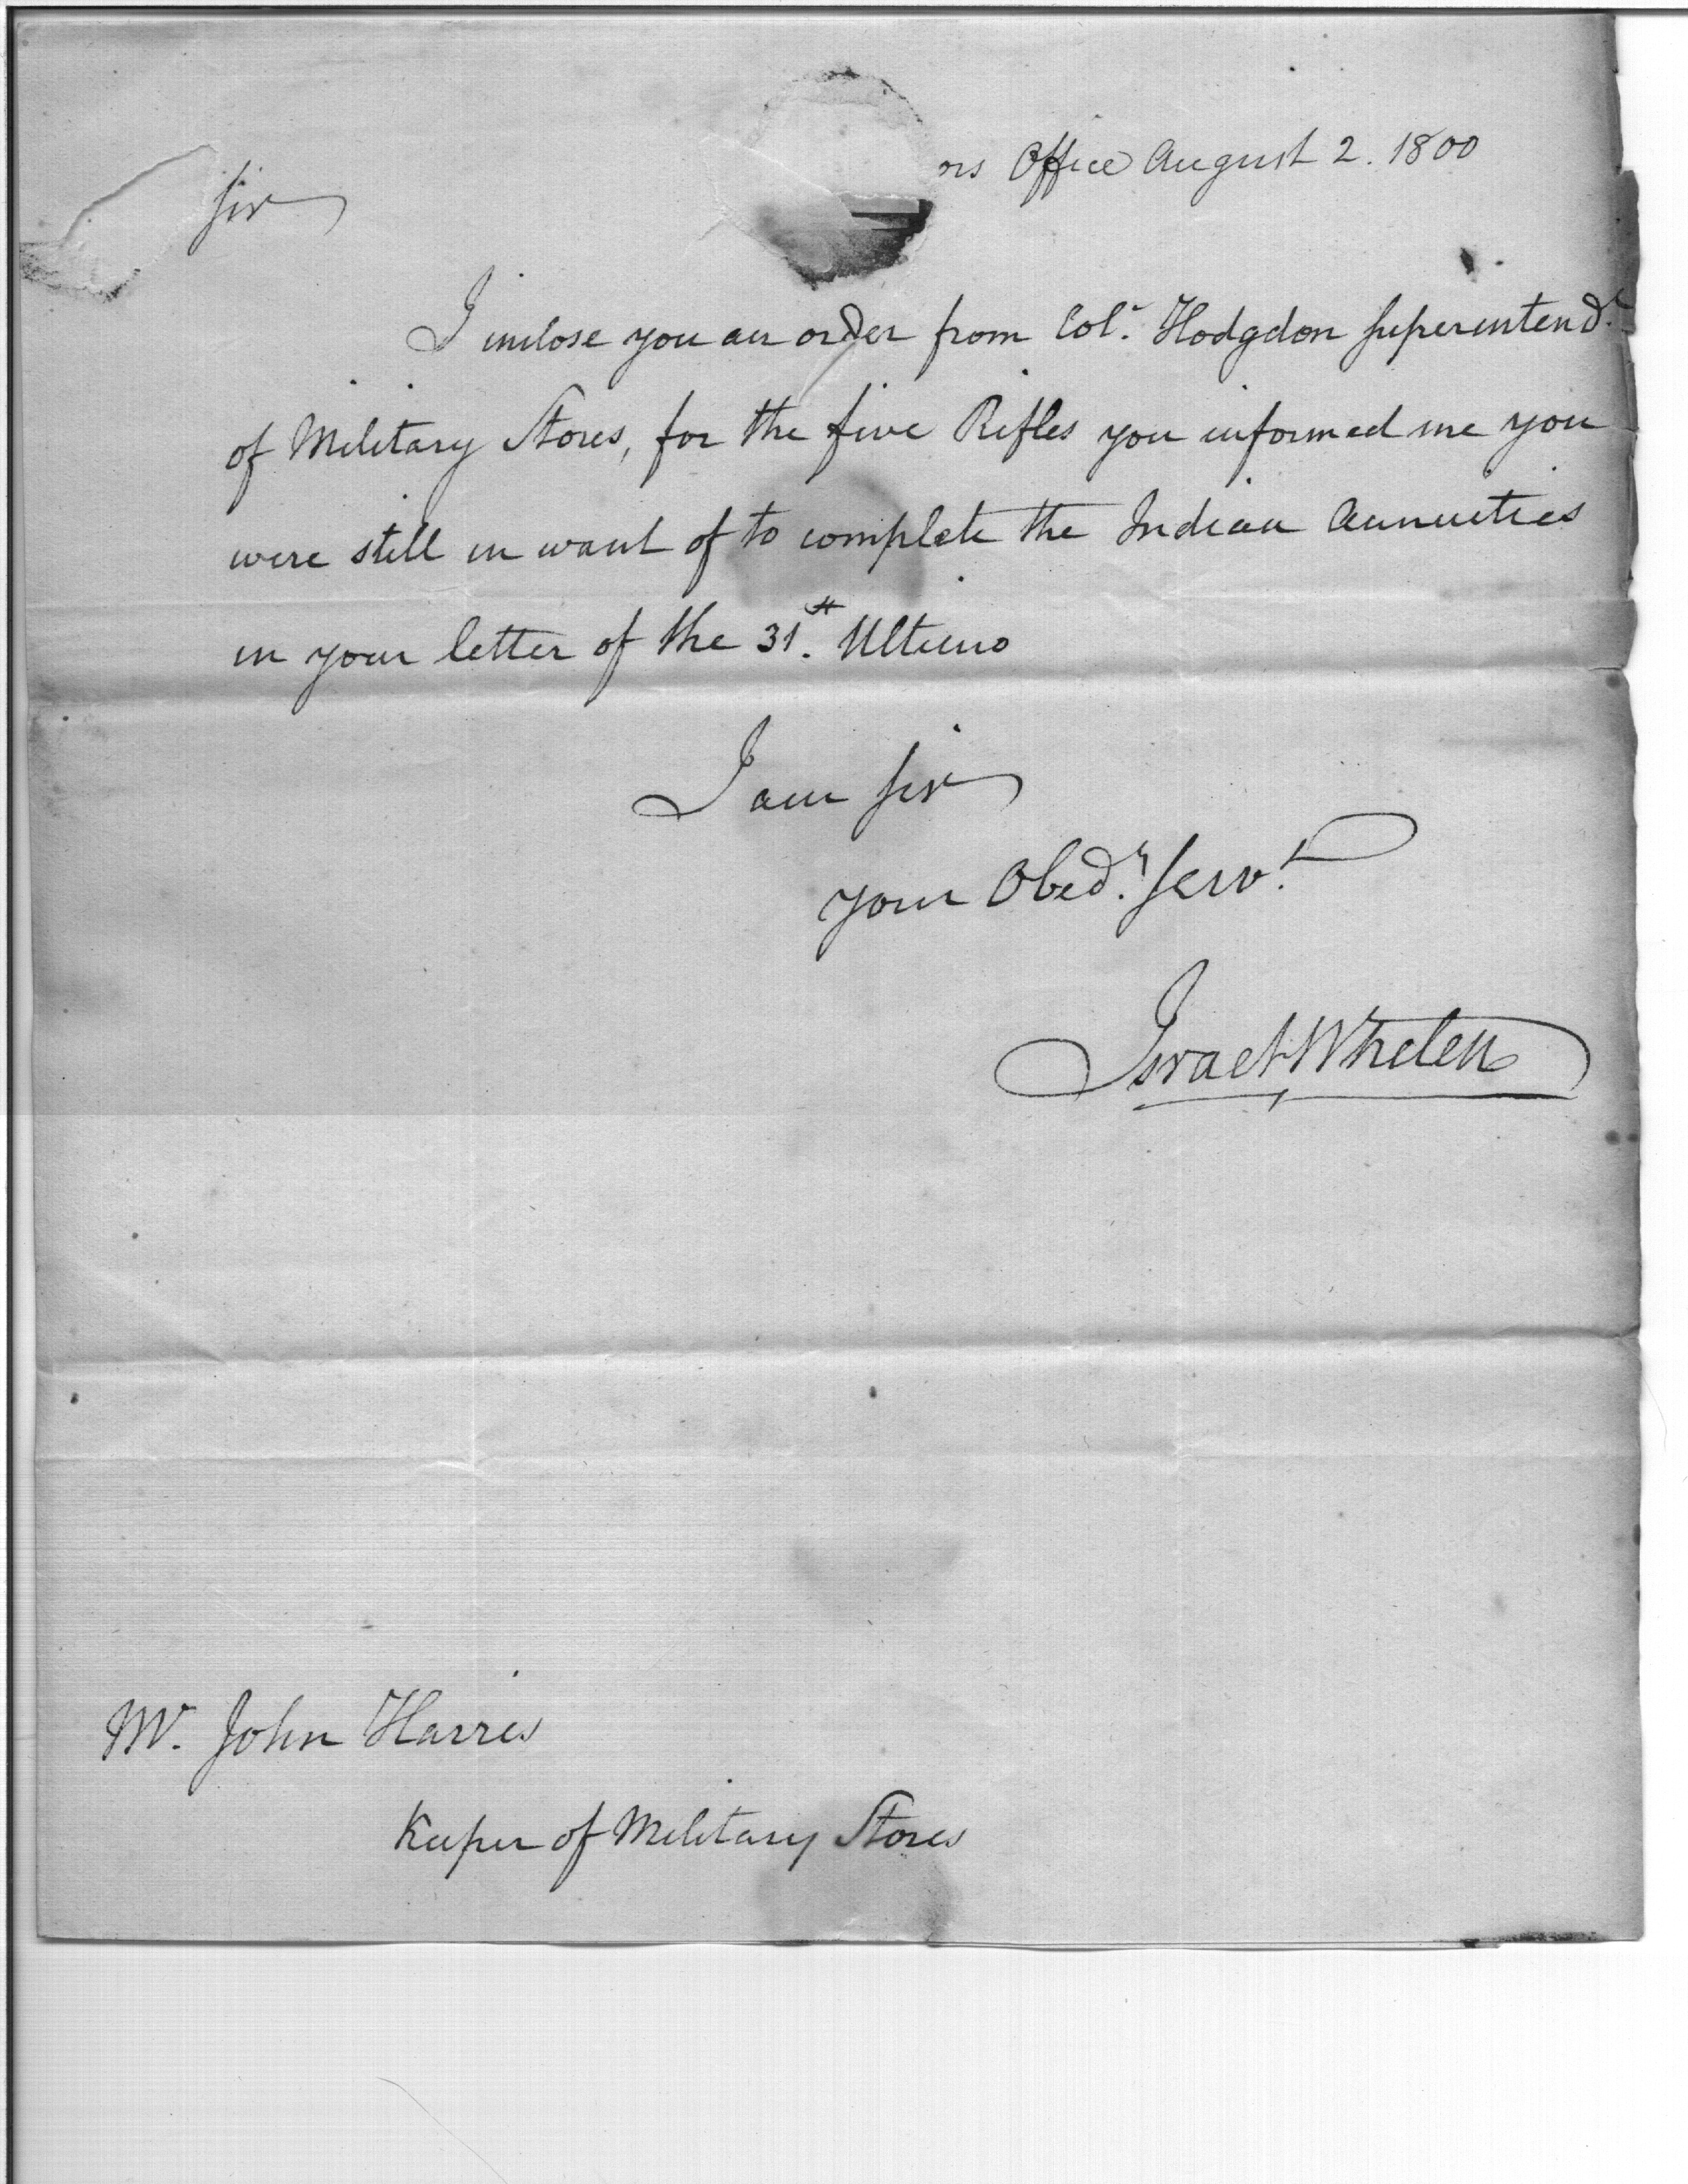 rs Office August 2. 1800
Sir
I inclose you an order from Col. Hodgdon Superintendt.
of Military Stores, for the five Rifles you informed me you
were still in want of to complete the Indian Annuities
in your letter of the 31st. Ultimo
I am Sir
your Obedt. Servt.
Israel Whelen
Mr. John Harris
Keeper of Military Stores